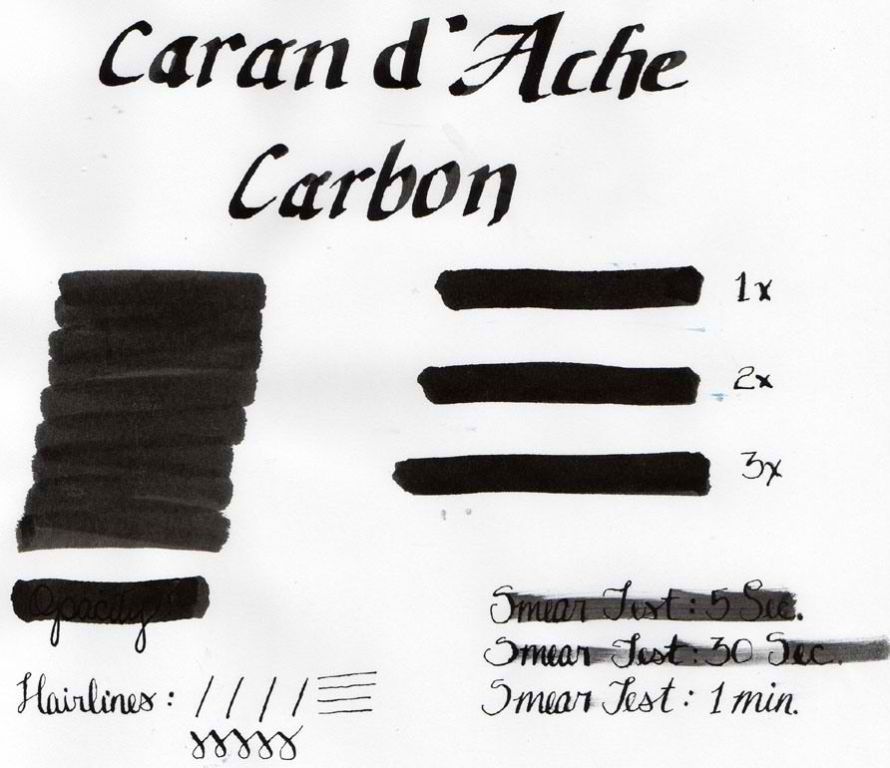 Caran d'Ache
Carbon
1x
2x
3x
Opacity
Smear Test: 5 Sec.
Smear Test: 30 Sec.
Smear Test: 1 min.
Hairlines: